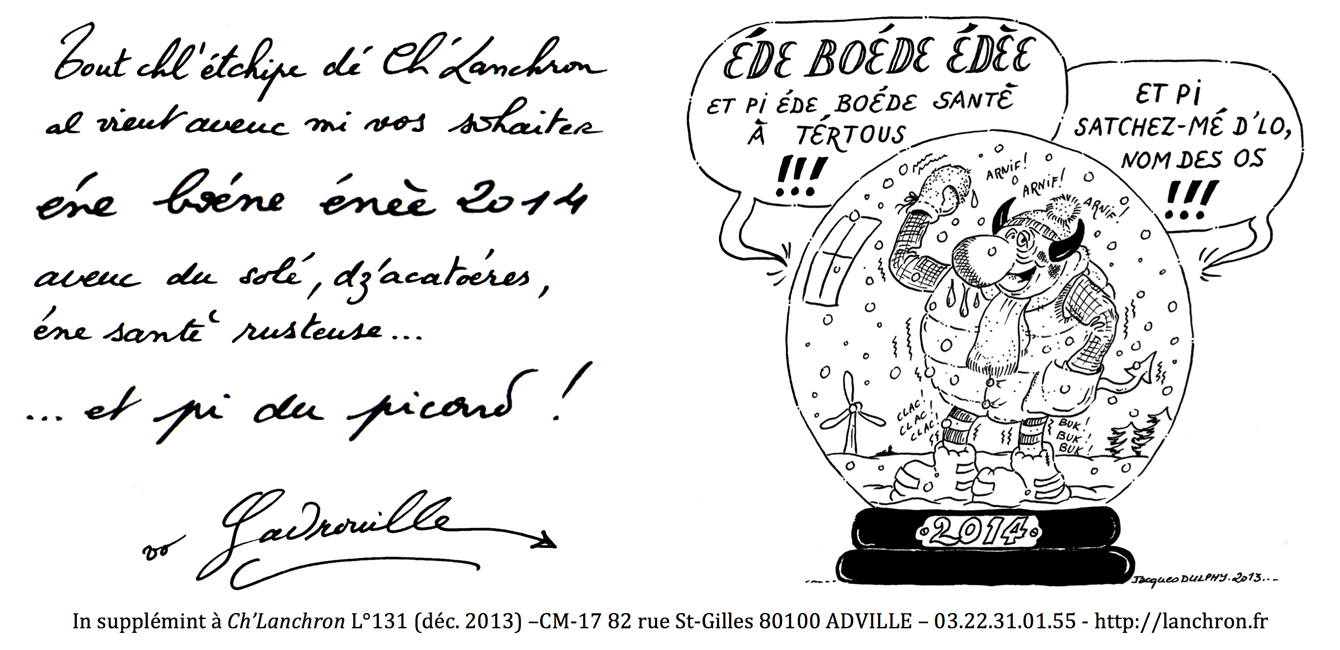 Tout chl'étchipe dé Ch'Lanchron
al vient aveuc mi vos sohaiter
éne boéne énèe 2014
aveuc du solé, dz'acatoéres,
éne santè rusteuse...
... et pi du picard !
vo Ladrouille
ÉDE BOÉDE ÉDÈE
ET PI ÉDE BOÉDE SANTÈ
À TÉRTOUS
!!!
ET PI
SATCHEZ-MÉ D'LO,
NOM DES OS
!!!
ARNIF!
ARNIF!
ARNIF!
CLAC!
CLAC!
CLAC!
BUK!
BUK!
BUK!
2014
Jacques DULPHY. 2013...
In supplémint à Ch'Lanchron L°131 (déc. 2013) –CM-17 82 rue St-Gilles 80100 ADVILLE – 03.22.31.01.55 - http://lanchron.fr